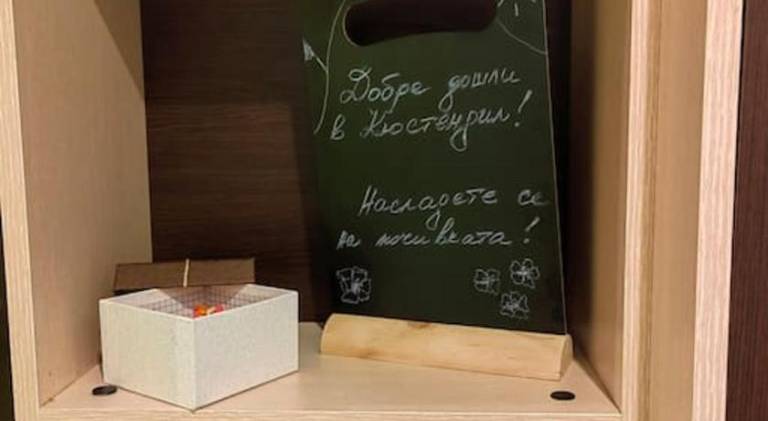 Добре дошли
в Кюстендил!
Насладете се
на почивката!